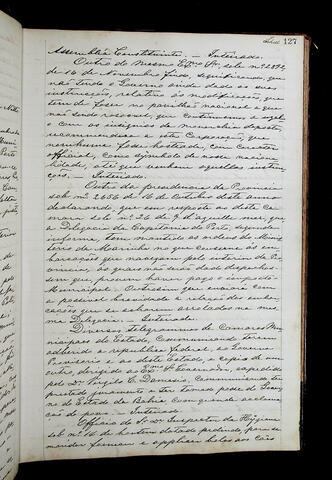 127
Assembléa Constituinte. — Inteirado.
Outro do mesmo Exmo Sr., sob nº 2892,
de 16 de Novembro findo, significando, que
não tendo o Governo ainda dado as suas
instrucções, relativa às modificações, que
tem de fazer no pavilhão nacional e que
não sendo razoavel que continuemos a usal-
o com as insignias da Monarchia deposta
recommendava a esta Corporação, que
nenhuma fosse hasteada, com caracter
official, como symbolo de nossa nacional
idade, até que venham aquellas instruc-
ções. — Inteirado.
Outro da presidencia da Provincia
sob nº 2656 de 16 de Outubro deste anno
declarando que em resposta ao desta Ca-
mara sob nº 26 de 9 d'aquelle mez, que
a Delegacia da Capitania do Porto, segundo
informa, tem mantido as ordens do Minis-
terio da Marinha no que concerne às em-
barcações que navegam pelo interior da Pro-
vincia, as quaes não
sem que provem haver pago o imposto
Municipal. Outrosim que enviará com
a possivel brevidade a relação das embar-
cações que se acharem arroladas na mes-
ma Delegacia. — Inteirado.
Diversos telegrammas de Camaras Mu-
nicipaes do Estado, communicando terem
adherido a republica Federal, ao Governo
Provisorio e ao deste Estado, e copia de um
outro dirigido ao Exmo Sr. Governador, expedido
pelo Dr. Virgilio C. Damasio, communicando ter
prestado juramento e ter tomado posse do Gover-
no do Estado da Bahia com grande acclama-
ção do povo. — Inteirado.
Officio do Sr. Dr. Inspector da Hygiene
sob nº 16 de hontem datado pedindo, para se
mandar fornecer e applicar bolas aos cães